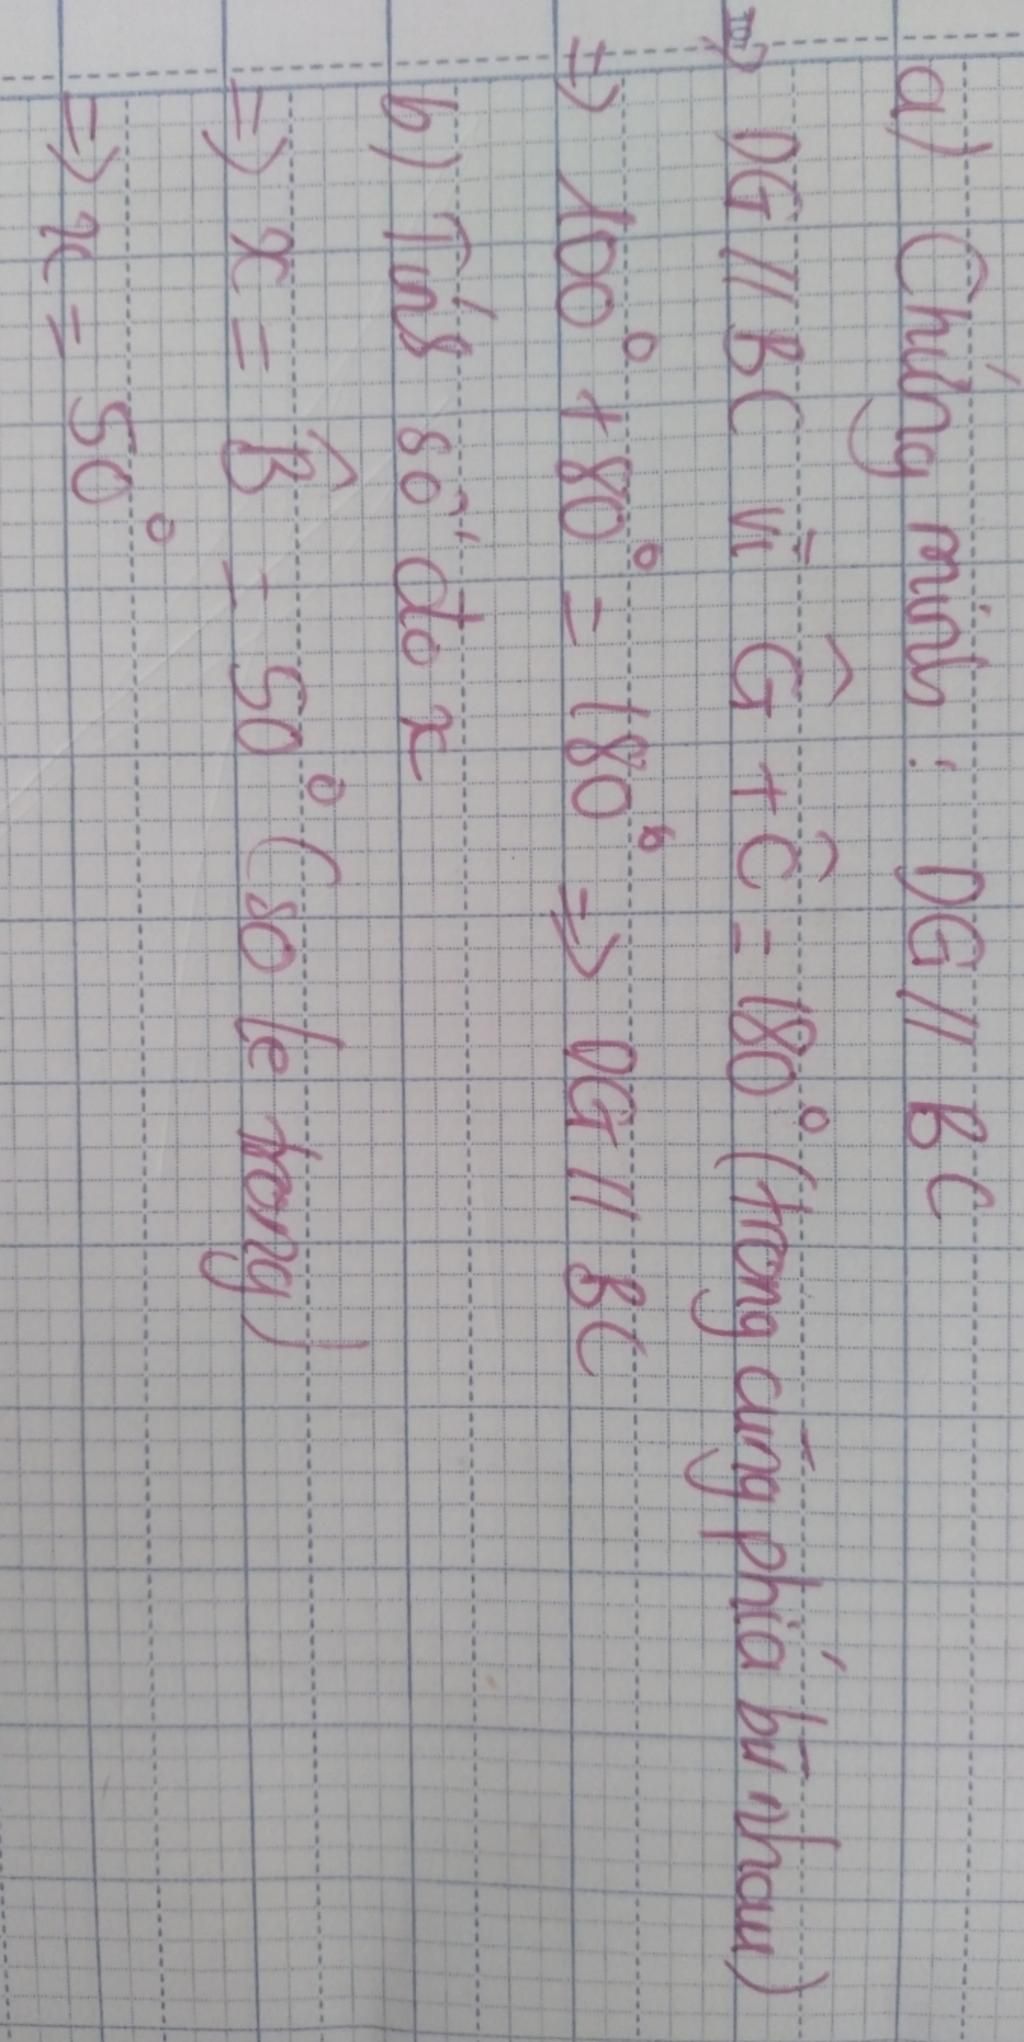 a) Chứng minh : DG // BC
=> DG // BC vì Ĝ + Ĉ = 180° (trong cùng phía bù nhau)
=> 100° + 80° = 180° => DG // BC
b) Tính số đo x
=> x = B̂ = 50° (so le trong)
=> x = 50°